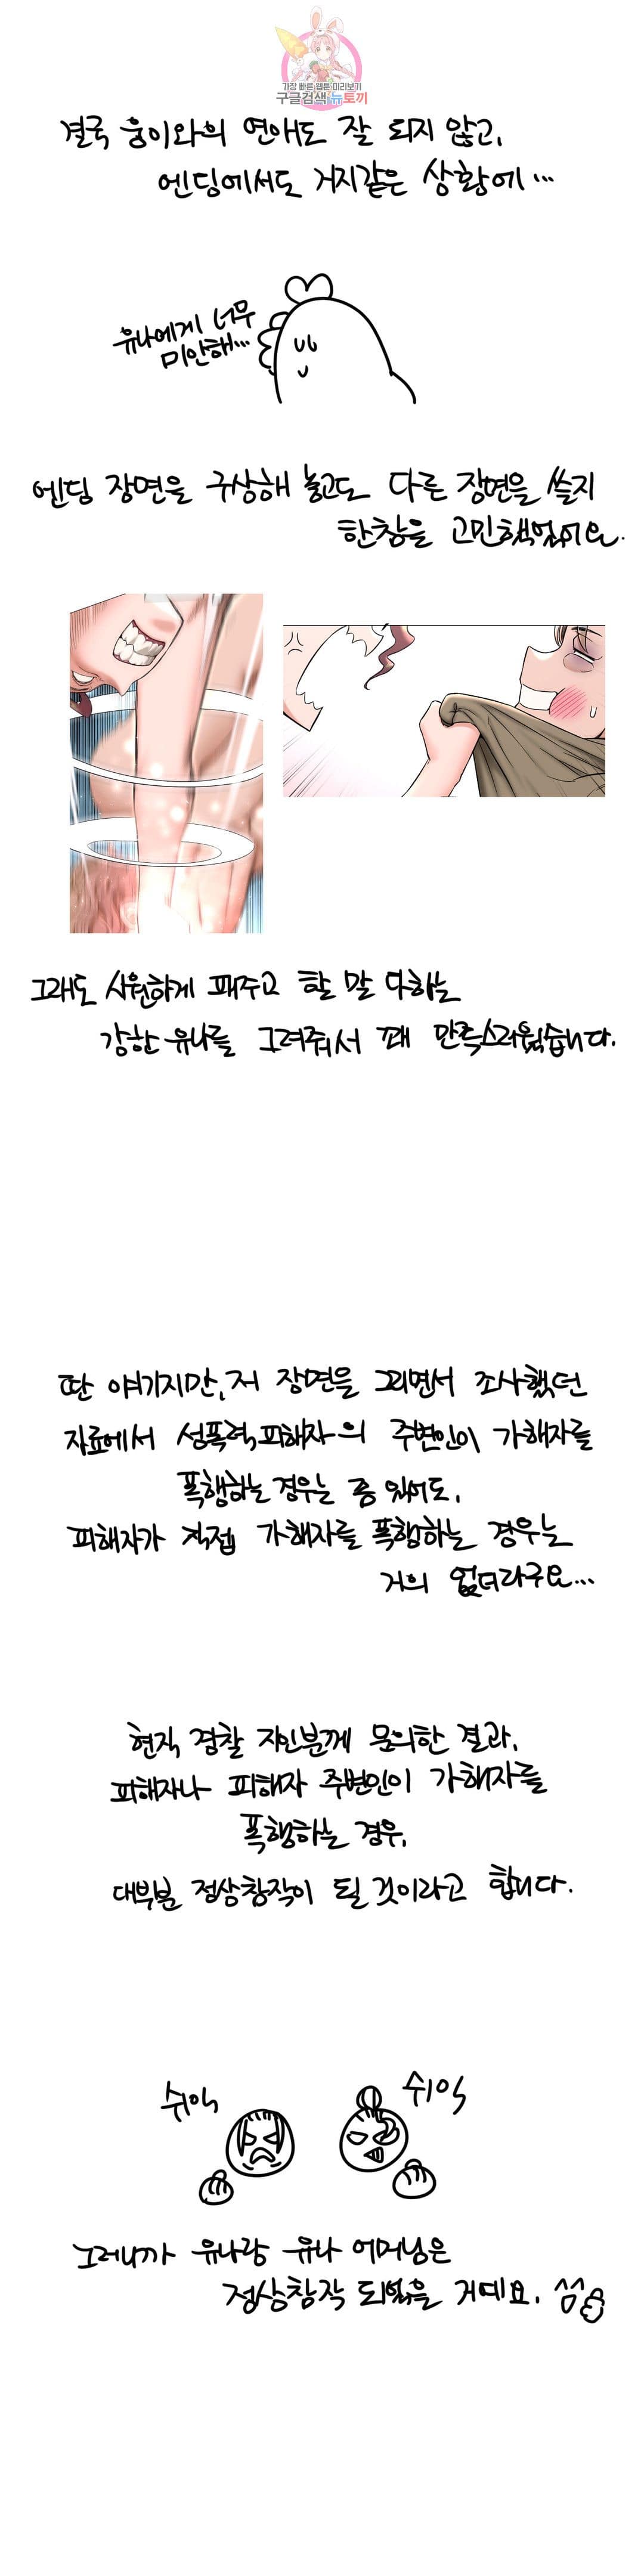 가장 빠른 웹툰 미리보기
구글검색 뉴토끼
결국 웅이와의 연애도 잘 되지 않고,
엔딩에서도 거지같은 상황에...
유나에게 너무
미안해...
엔딩 장면을 구상해 놓고도 다른 장면을 쓸지
한참을 고민했었어요.
그래도 시원하게 패주고 할 말 다하는
강한 유나를 그려줘서 꽤 만족스러웠습니다.
딴 얘기지만, 저 장면을 그리면서 조사했던
자료에서 성폭력 피해자의 주변인이 가해자를
폭행하는 경우는 좀 있어도,
피해자가 직접 가해자를 폭행하는 경우는
거의 없더라구요...
현직 경찰 지인분께 문의한 결과,
피해자나 피해자 주변인이 가해자를
폭행하는 경우,
대부분 정상참작이 될 것이라고 합니다.
쉬익 쉬익
그러니까 유나랑 유나 어머님은
정상참작 되었을 거예요. ^^